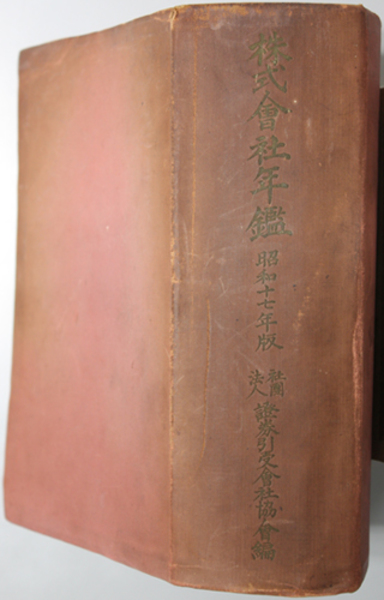 株式會社年鑑
昭和十七年版
社團法人
證券引受會社協會編